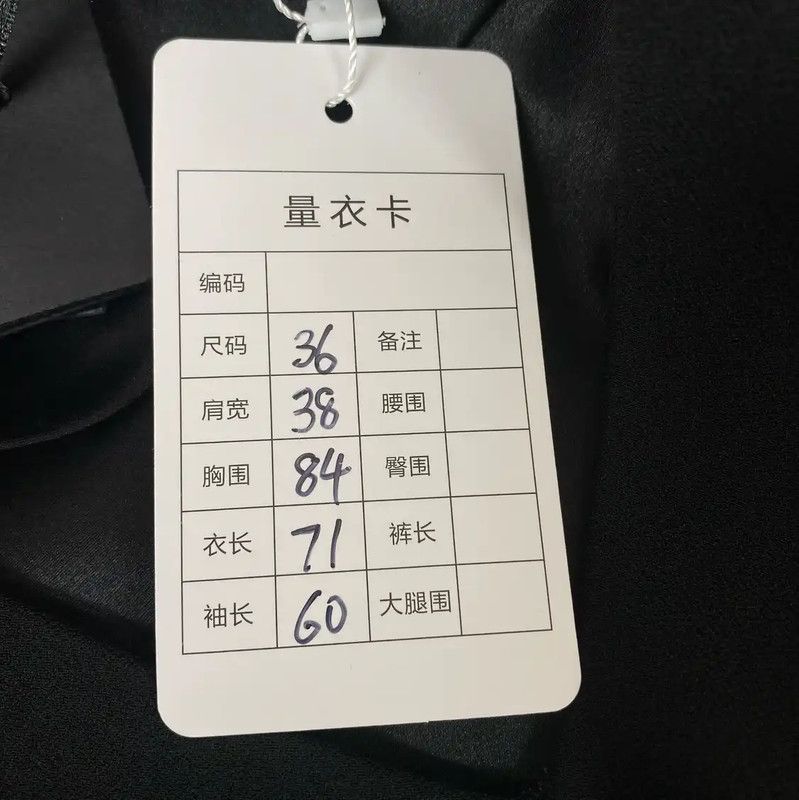 量衣卡
编码
尺码 36 备注
肩宽 38 腰围
胸围 84 臀围
衣长 71 裤长
袖长 60 大腿围